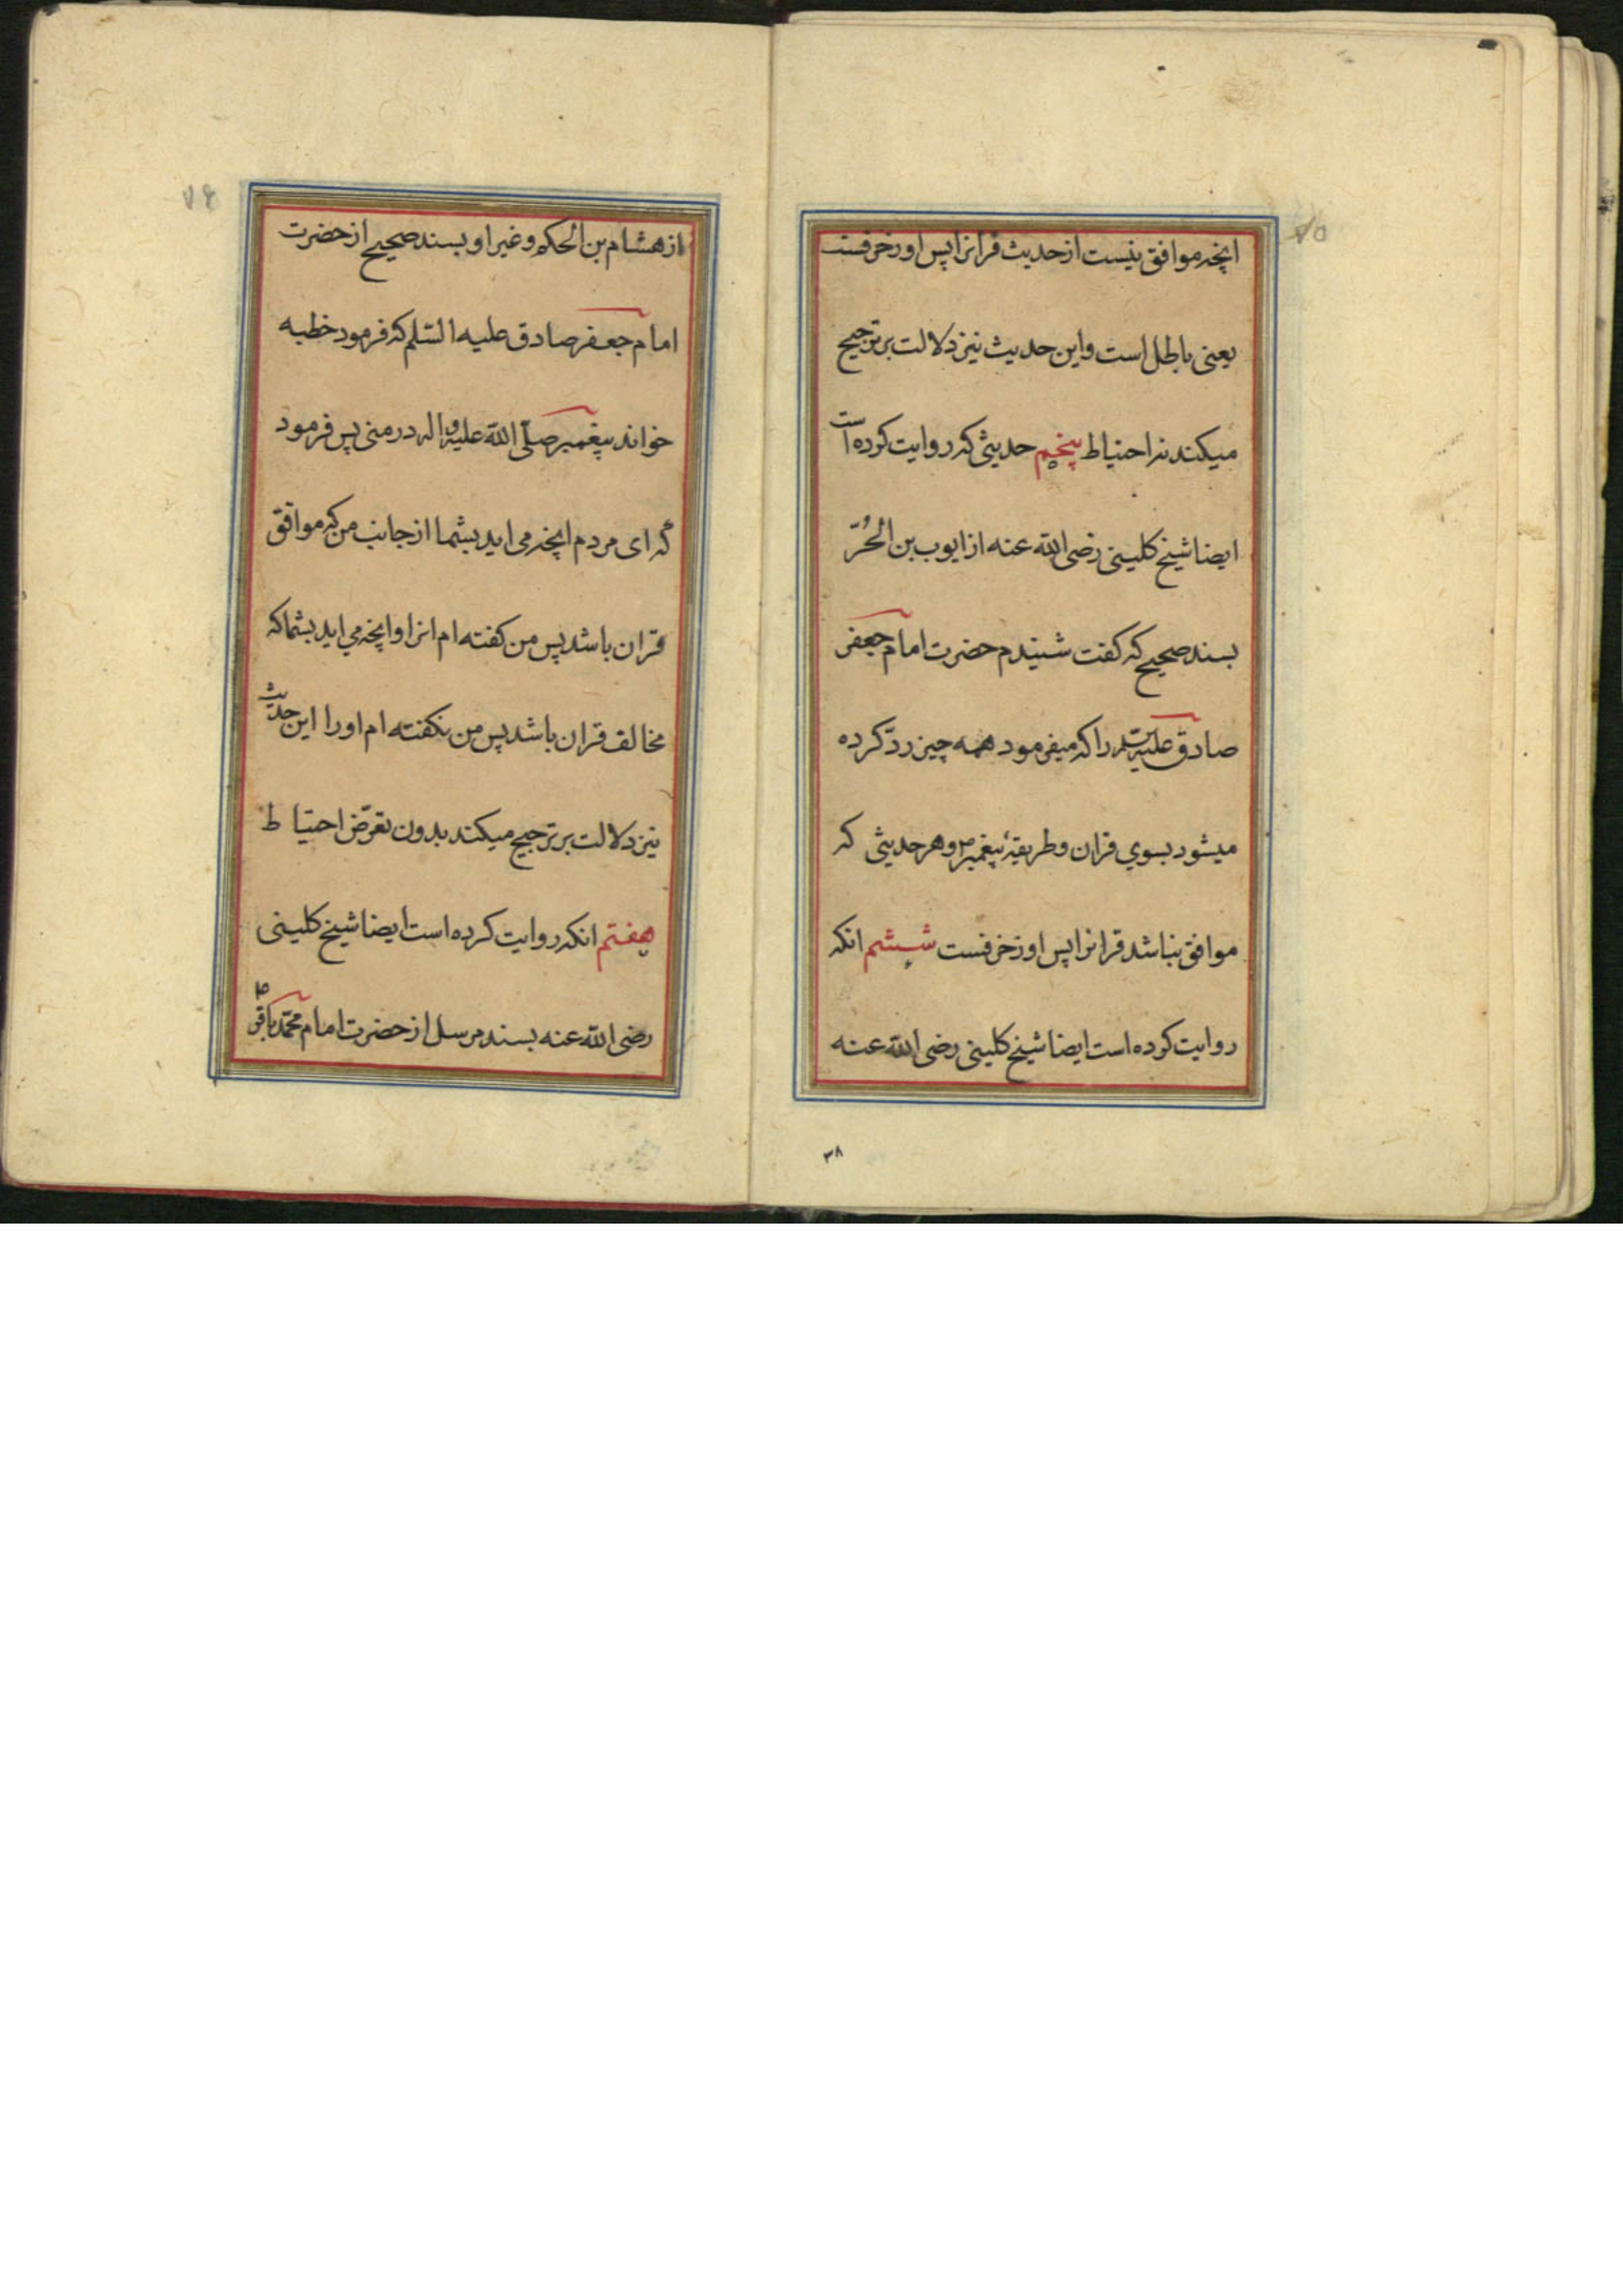 ۷۵
انچه موافق نیست از حدیث قرانرا پس او زخرفست
یعنی باطل است و این حدیث نیز دلالت بر ترجیح
میکند نه احتیاط پنجم حدیثی که روایت کرده است
ایضا شیخ کلینی رضی الله عنه از ایوب بن الحُرّ
بسند صحیح که گفت شنیدم حضرت امام جعفر
صادق علیه السلم را که میفرمود همه چیز ردّ کرده
میشود بسوی قران و طریقهٔ پیغمبر ص و هر حدیثی که
موافق نباشد قرانرا پس او زخرفست ششم انکه
روایت کرده است ایضا شیخ کلینی رضی الله عنه
۳۸
۷۶
از هشام بن الحکم و غیر او بسند صحیح از حضرت
امام جعفر صادق علیه السّلم که فرمود خطبه
خواند پیغمبر صلّی الله علیه و اله در منی پس فرمود
که ای مردم انچه می اید بشما از جانب من که موافق
قران باشد پس من کفته ام انرا و انچه می اید بشما که
مخالف قران باشد پس من نکفته ام او را این حدیث
نیز دلالت بر ترجیح میکند بدون تعرّض احتیاط
هفتم انکه روایت کرده است ایضا شیخ کلینی
رضی الله عنه بسند مرسل از حضرت امام محمّد باقر ع